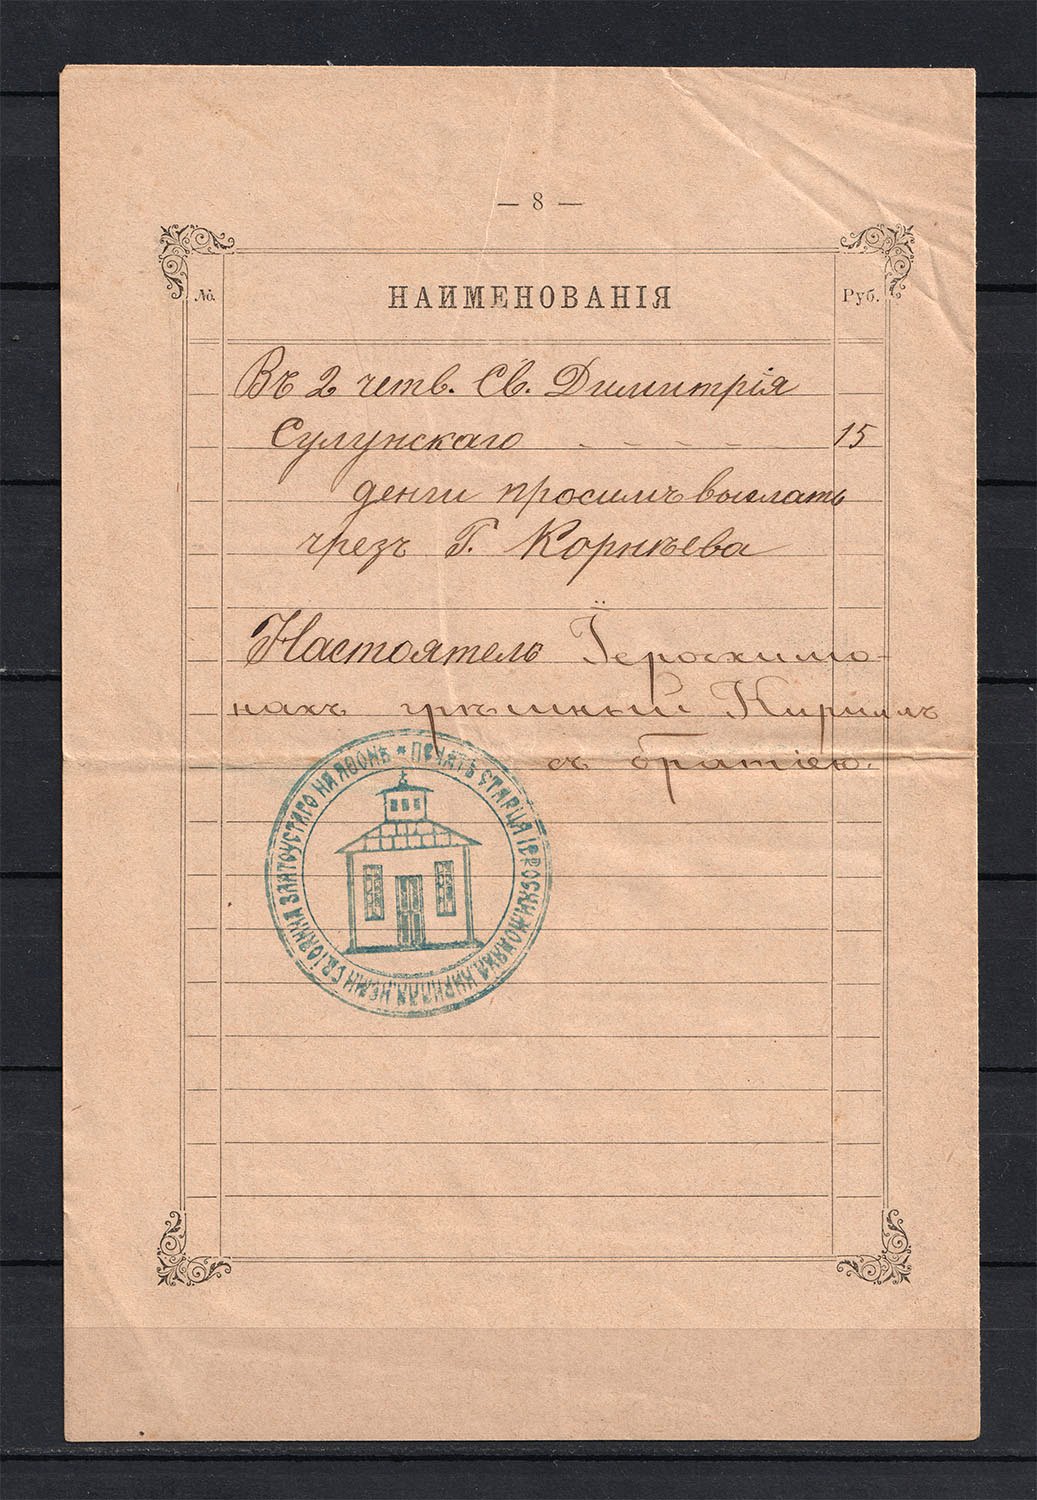 — 8 —
№. НАИМЕНОВАНІЯ Руб.
Въ 2 четв. Св. Димитрія
Сулунскаго - - - - - 15
денги просимъ выслать
чрезъ Г. Корнѣева
Настоятель Іеросхимо-
нахъ грѣшный Кириллъ
съ братіею.
* ПЕЧАТЬ СТАРЦА ІЕРОСХИМОНАХА КИРИЛЛА КЕЛИИ СВ. ІОАННА ЗЛАТОУСТАГО НА АѲОНѢ